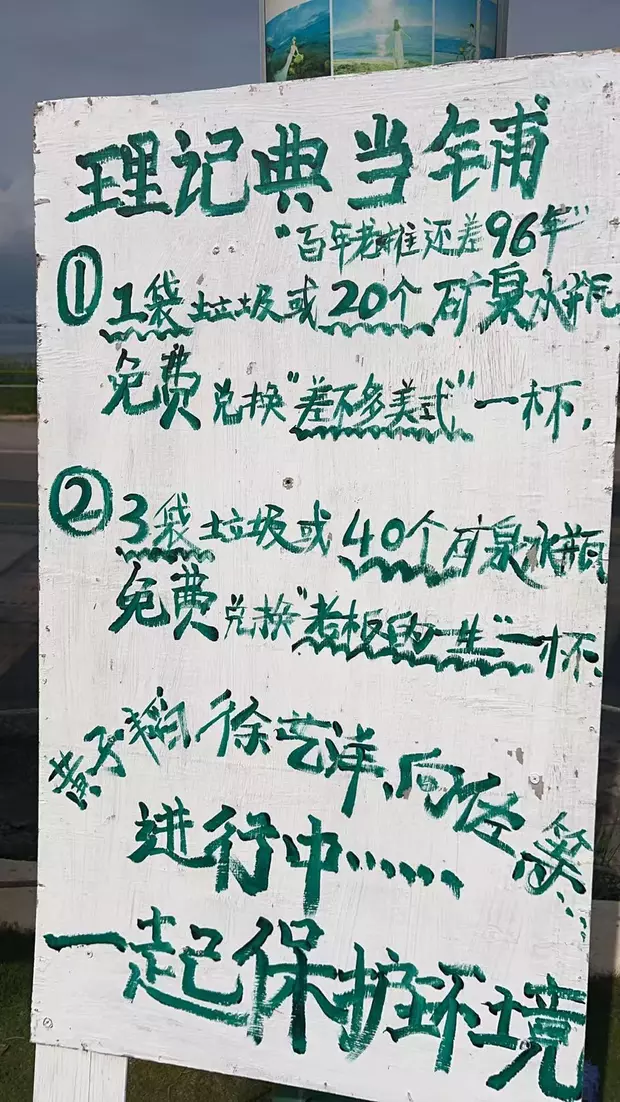 理记典当铺
"百年老摊还差96年"
① 1袋垃圾或20个矿泉水瓶
免费兑换"差不多美式"一杯,
② 3袋垃圾或40个矿泉水瓶
免费兑换"老板的一生"一杯.
黄子韬徐艺洋,向佐等...
进行中……
一起保护环境